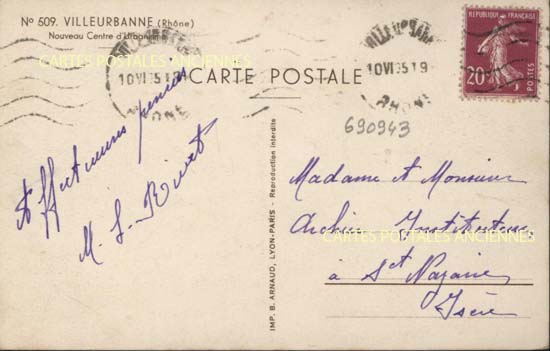 N° 509. VILLEURBANNE (Rhône)
Nouveau Centre d'Urbanisme
CARTE POSTALE
VILLEURBANNE
10 VI 35 19
RHONE
VILLEURBANNE
10 VI 35 19
RHONE
REPUBLIQUE FRANÇAISE
20c
POSTES
690943
Affectueuses pensées
M. L. Rivet
IMP. B. ARNAUD, LYON-PARIS - Reproduction interdite
Madame et Monsieur
Instituteurs
à St Nazaire
Isère
CARTES POSTALES ANCIENNES
CARTES POSTALES ANCIENNES